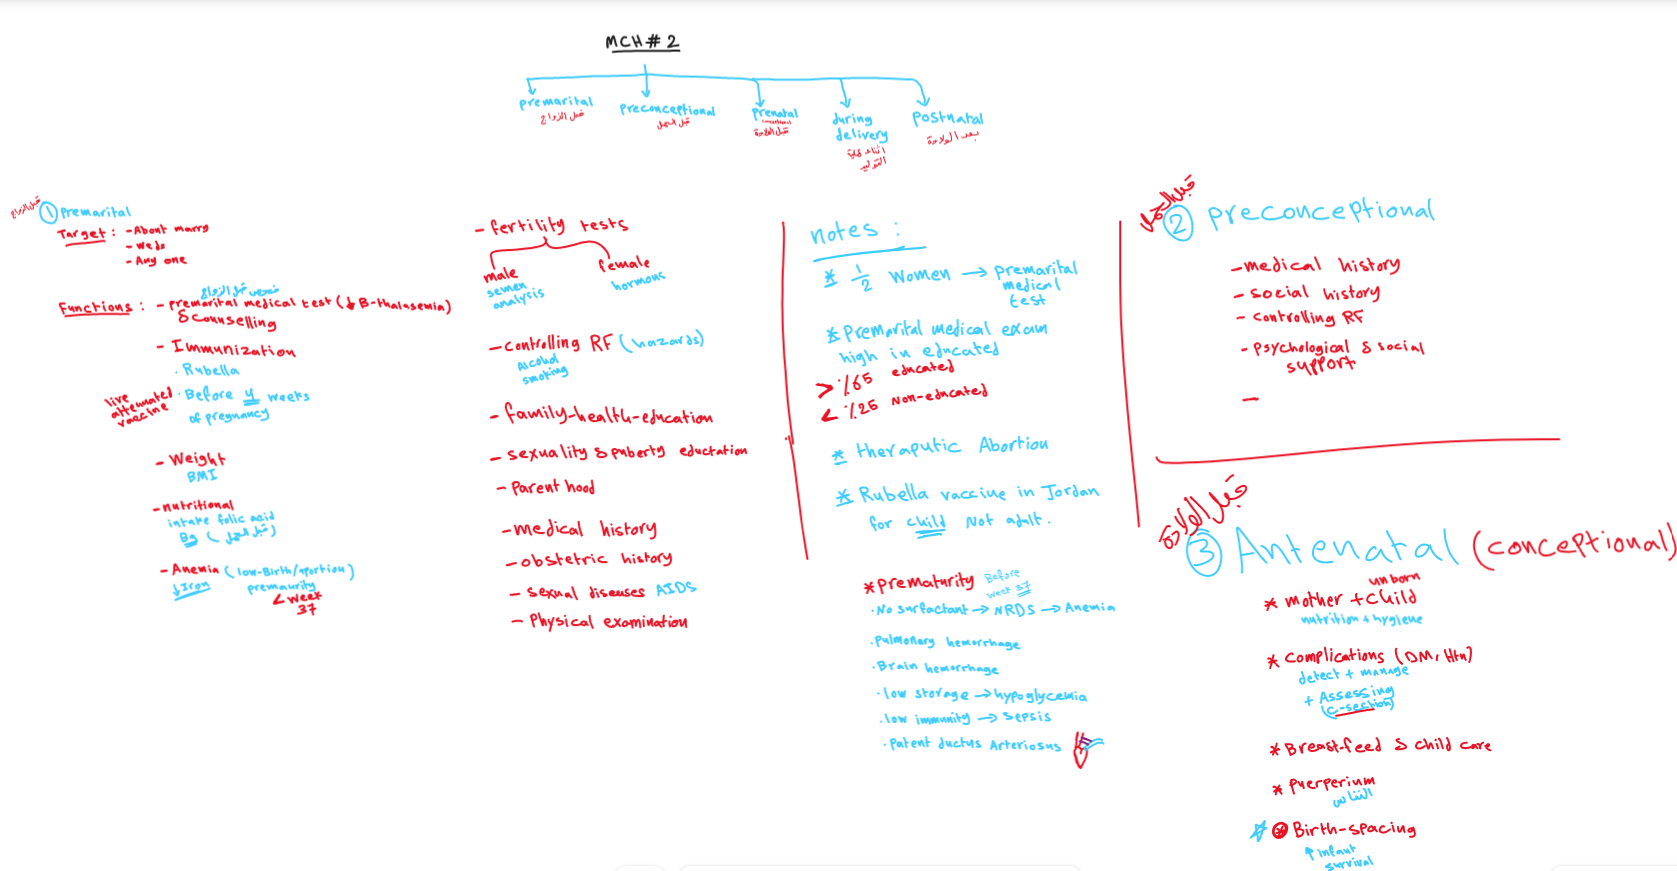 MCH # 2
premarital
قبل الزواج
preconceptional
قبل الحمل
prenatal
قبل الولادة
during
delivery
اثناء عملية
التوليد
postnatal
بعد الولادة
قبل الزواج
① premarital
Target : - About marry
- weds
- Any one
فحص قبل الزواج
Functions : - premarital medical test (↓ B-thalasemia)
& counselling
- Immunization
· Rubella
live
attenuated
vaccine
· Before 4 weeks
of pregnancy
- Weight
BMI
- nutritional
intake folic acid
B9 (قبل الحمل)
- Anemia (low-Birth/aportion)
↓ Iron
premaurity
< week
37
- fertility tests
male
semen
analysis
female
hormous
- controlling RF (hazards)
Alcohol
smoking
- family-health-education
- sexuality & puberty eductation
- Parent hood
- medical history
- obstetric history
- sexual diseases AIDS
- Physical examination
notes :
* 1/2 women → premarital
medical
test
* Premarital medical exam
high in educated
> %65 educated
< %25 Non-educated
* theraputic Abortion
* Rubella vaccine in Jordan
for child Not adult.
* prematurity Before
week 37
· No surfactant → NRDS → Anemia
· Pulmonary hemorrhage
· Brain hemorrhage
· low storage → hypoglycemia
· low immunity → sepsis
· Patent ductus Arteriosus
قبل الحمل
② preconceptional
- medical history
- social history
- controlling RF
- psychological & social
support
-
قبل الولادة
③ Antenatal (conceptional)
unborn
* mother + child
nutrition + hygiene
* complications (DM, Htn)
detect + manage
+ Assessing
(c-section)
* Breast-feed & child care
* puerperium
النفاس
* Birth-spacing
↑ infant
survival